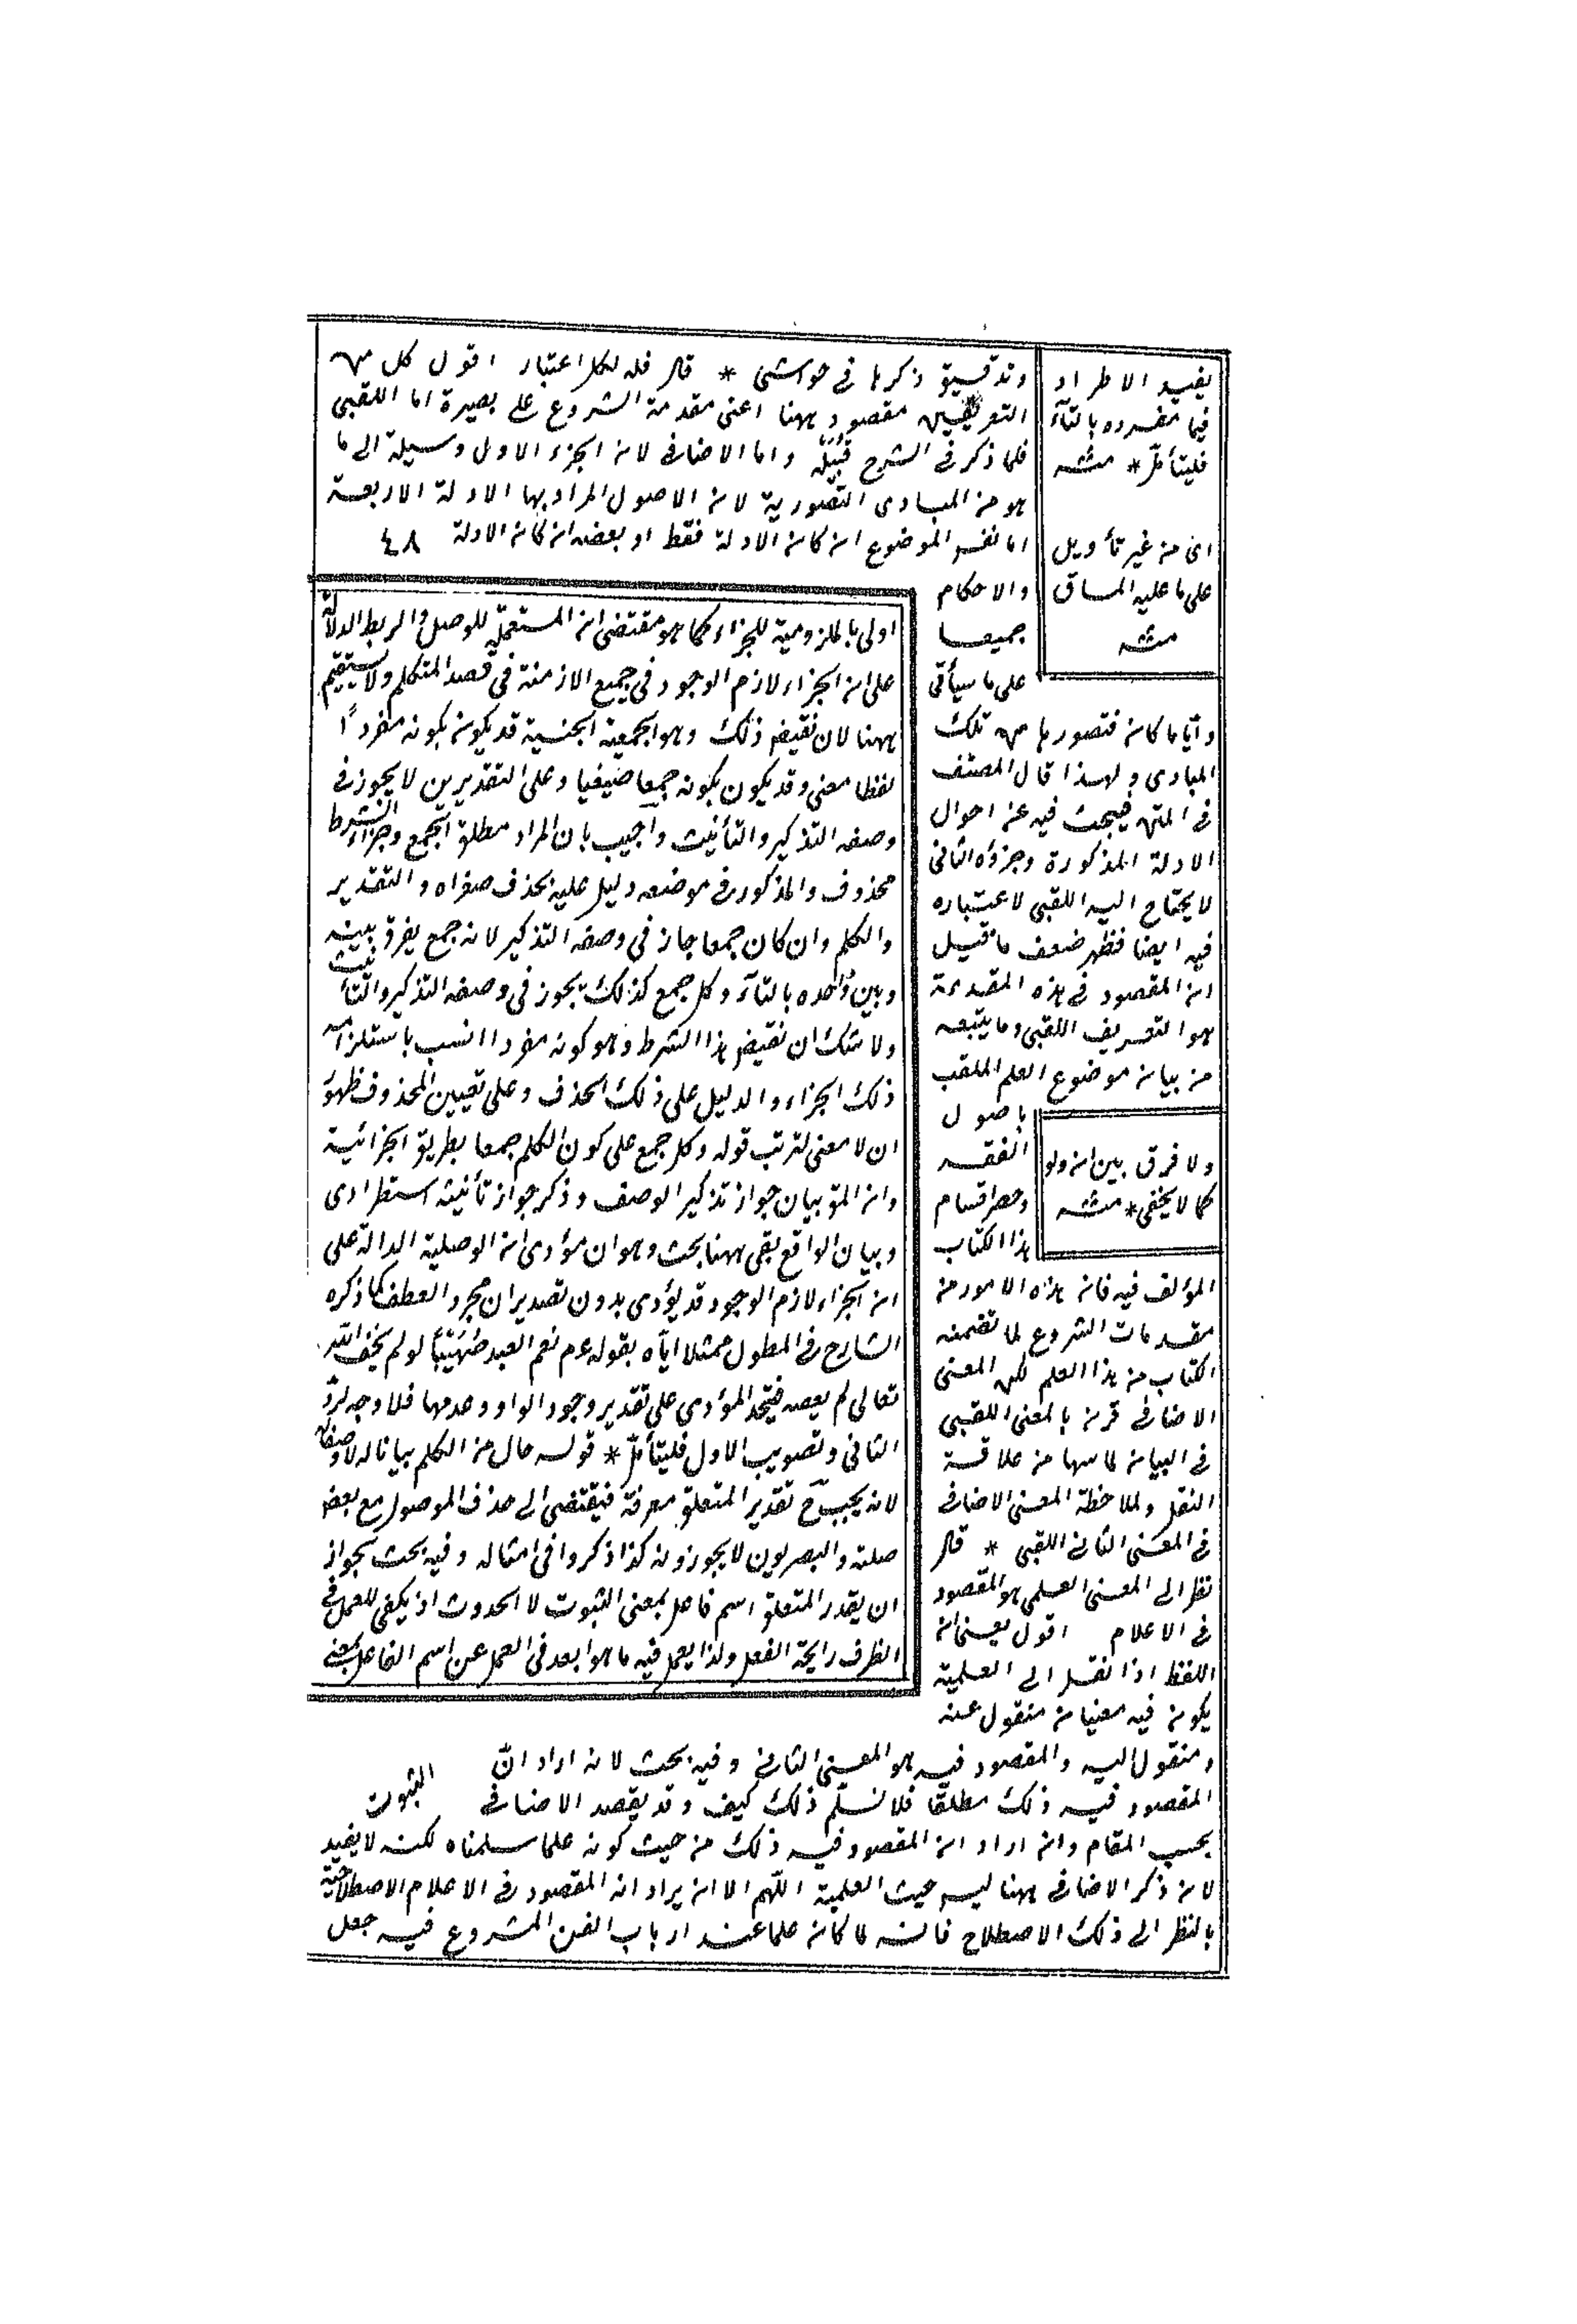 وتدقيق ذكرها فى حواشى * قال فله لكل اعتبار اقول كل من
التعريفين مقصود ههنا اعنى مقدمة الشروع على بصيرة اما اللقبى
فلما ذكر فى الشرح قبيله واما الاضافى لان الجزء الاول وسيلة الى ما
هو من المبادى التصورية لان الاصول المراد بها الادلة الاربعة
اما نفس الموضوع ان كان الادلة فقط او بعضه ان كان الادلة ٤٨
والاحكام
جميعا
على ما سيأتى
وأيا ما كان فتصورها من تلك
المبادى ولهذا قال المصنف
فى المتن فيبحث فيه عن احوال
الادلة المذكورة وجزؤه الثانى
لا يحتاج اليه اللقبى لاعتباره
فيه ايضا فظهر ضعف ما قيل
ان المقصود فى هذه المقدمة
هو التعريف اللقبى وما يتبعه
من بيان موضوع العلم الملقب
باصول
الفقه
وحصر اقسام
هذا الكتاب
المؤلف فيه فان هذه الامور من
مقدمات الشروع لما تضمنه
الكتاب من هذا العلم لكن المعنى
الاضافى قرن بالمعنى اللقبى
فى البيان لما سها من علاقة
النقل ولملاحظة المعنى الاضافى
فى المعنى الثانى اللقبى * قال
نظرا الى المعنى العلمى هو المقصود
فى الاعلام اقول يعنى ان
اللفظ اذا نقل الى العلمية
يكون فيه معنيان منقول عنه
ومنقول اليه والمقصود فيه هو المعنى الثانى وفيه بحث لانه اراد ان
المقصود فيه ذلك مطلقا فلا نسلم ذلك كيف وقد يقصد الاضافى
بحسب المقام وان اراد ان المقصود فيه ذلك من حيث كونه علما سلمناه لكنه لا يفيد
لان ذكر الاضافى ههنا ليس حيث العلمية اللهم الا ان يراد انه المقصود فى الاعلام الاصطلاحية
بالنظر الى ذلك الاصطلاح فانه لما كان علما عند ارباب الفن المشروع فيه جعل
يفيد الاطراد
فيما مفرده بالتآء
فليتأمل * منه
اى من غير تأويل
على ما عليه المساق
منه
ولا فرق بين ان ولو
كما لا يخفى * منه
اولى بالملزومية للجزاء كما هو مقتضى ان المستعملة للوصل والربط الدلالة
على ان الجزاء لازم الوجود فى جميع الازمنة فى قصد المتكلم ولا يستقيم
ههنا لان نقيض ذلك وهو الجمعية الجنسية قد يكون بكونه مفردًا
لفظا معنى وقد يكون بكونه جمعا ضيفيا وعلى التقديرين لا يجوز فى
وصفه التذكير والتأنيث واجيب بان المراد مطلق الجمع وجزاء الشرط
محذوف والمذكور فى موضعه دليل عليه بحذف صغراه والتقدير
والكلم وان كان جمعا جاز فى وصفه التذكير لانه جمع يفرق بينه
وبين واحده بالتآء وكل جمع كذلك يجوز فى وصفه التذكير والتأنيث
ولا شك ان نقيض هذا الشرط وهو كونه مفردا انسب باستلزامه
ذلك الجزاء والدليل على ذلك الحذف وعلى تعيين المحذوف ظهور
ان لا معنى لترتب قوله وكل جمع على كون الكلم جمعا بطريق الجزائية
وان المق بيان جواز تذكير الوصف وذكر جواز تأنيثه استطرادى
وبيان الواقع بقى ههنا بحث وهو ان مؤدى ان الوصلية الدالة على
ان الجزاء لازم الوجود قد يؤدى بدون تصدير ان مجرد العطف كما ذكره
الشارح فى المطول ممثلا اياه بقوله عم نعم العبد صُهَيْب لو لم يخف الله
تعالى لم يعصه فيتحد المؤدى على تقدير وجود الواو وعدمها فلا وجه لرد
الثانى وتصويب الاول فليتأمل * قوله حال من الكلم بيانا له لا وصفا له
لانه يجب ح تقدير المتعلق معرفة فيقتضى الى حذف الموصول مع بعض
صلته والبصريون لا يجوزونه كذا ذكروا فى امثاله وفيه بحث لجواز
ان يقدر المتعلق اسم فاعل بمعنى الثبوت لا الحدوث اذ يكفى للعمل فى
الظرف رايحة الفعل ولذا يعمل فيه ما هو ابعد فى العمل عن اسم الفاعل بمعنى
الثبوت